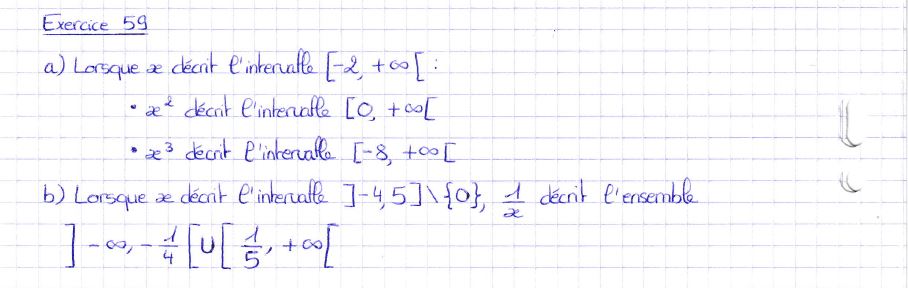 Exercice 59
a) Lorsque x décrit l'intervalle [-2, +∞[ :
• x² décrit l'intervalle [0, +∞[
• x³ décrit l'intervalle [-8, +∞[
b) Lorsque x décrit l'intervalle ]-4,5]\{0}, 1/x décrit l'ensemble
]-∞, -1/4[∪[1/5, +∞[